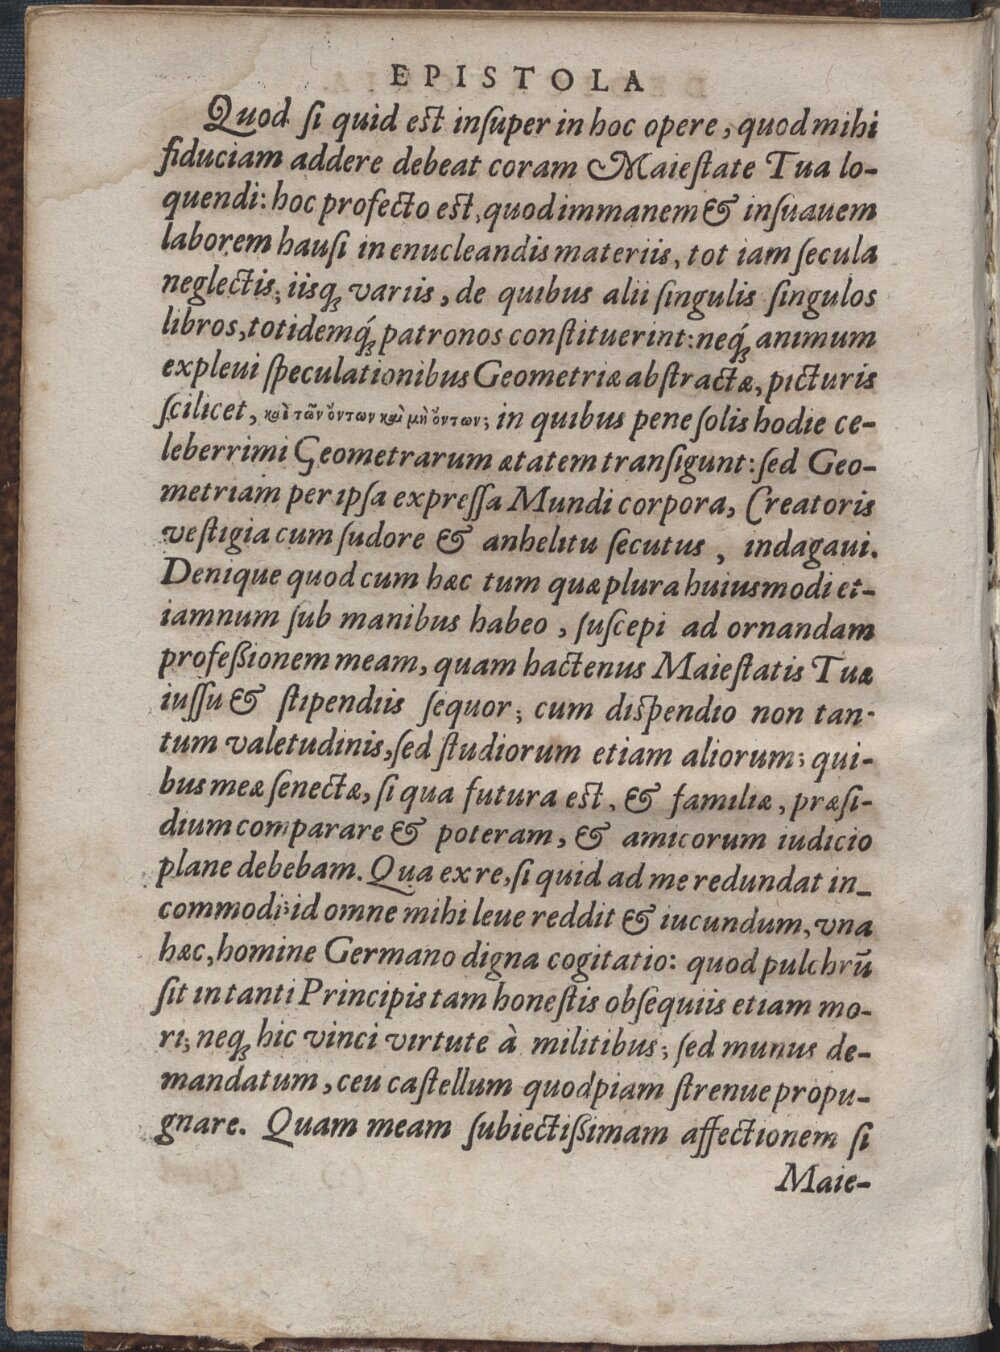 EPISTOLA
Quod ſi quid eſt inſuper in hoc opere, quod mihi
fiduciam addere debeat coram Maieſtate Tua lo-
quendi: hoc profecto est, quod immanem & inſuauem
laborem hauſi in enucleandis materiis, tot iam ſecula
neglectis, iisq́ꝫ variis, de quibus alii ſingulis ſingulos
libros, totidemq́ꝫ patronos conſtituerint: neq́ꝫ animum
expleui ſpeculationibus Geometriæ abſtractæ, picturis
ſcilicet, καὶ τῶν ὄντων καὶ μὴ ὄντων; in quibus pene ſolis hodie ce-
leberrimi Geometrarum ætatem tranſigunt: ſed Geo-
metriam per ipſa expreſſa Mundi corpora, Creatoris
veſtigia cum ſudore & anhelitu ſecutus, indagaui.
Denique quod cum hæc tum quæ plura huiusmodi et-
iamnum ſub manibus habeo, ſuſcepi ad ornandam
profeßionem meam, quam hactenus Maieſtatis Tuæ
iuſſu & ſtipendiis ſequor; cum diſpendio non tan-
tum valetudinis, ſed ſtudiorum etiam aliorum; qui-
bus meæ ſenectæ, ſi qua futura est, & familiæ, præſi-
dium comparare & poteram, & amicorum iudicio
plane debebam. Qua ex re, ſi quid ad me redundat in-
commodi; id omne mihi leue reddit & iucundum, vna
hæc, homine Germano digna cogitatio: quod pulchrũ
ſit in tanti Principis tam honeſtis obſequiis etiam mo-
ri; neqꝫ hic vinci virtute à militibus; ſed munus de-
mandatum, ceu caſtellum quodpiam ſtrenue propu-
gnare. Quam meam ſubiectißimam affectionem ſi
Maie-